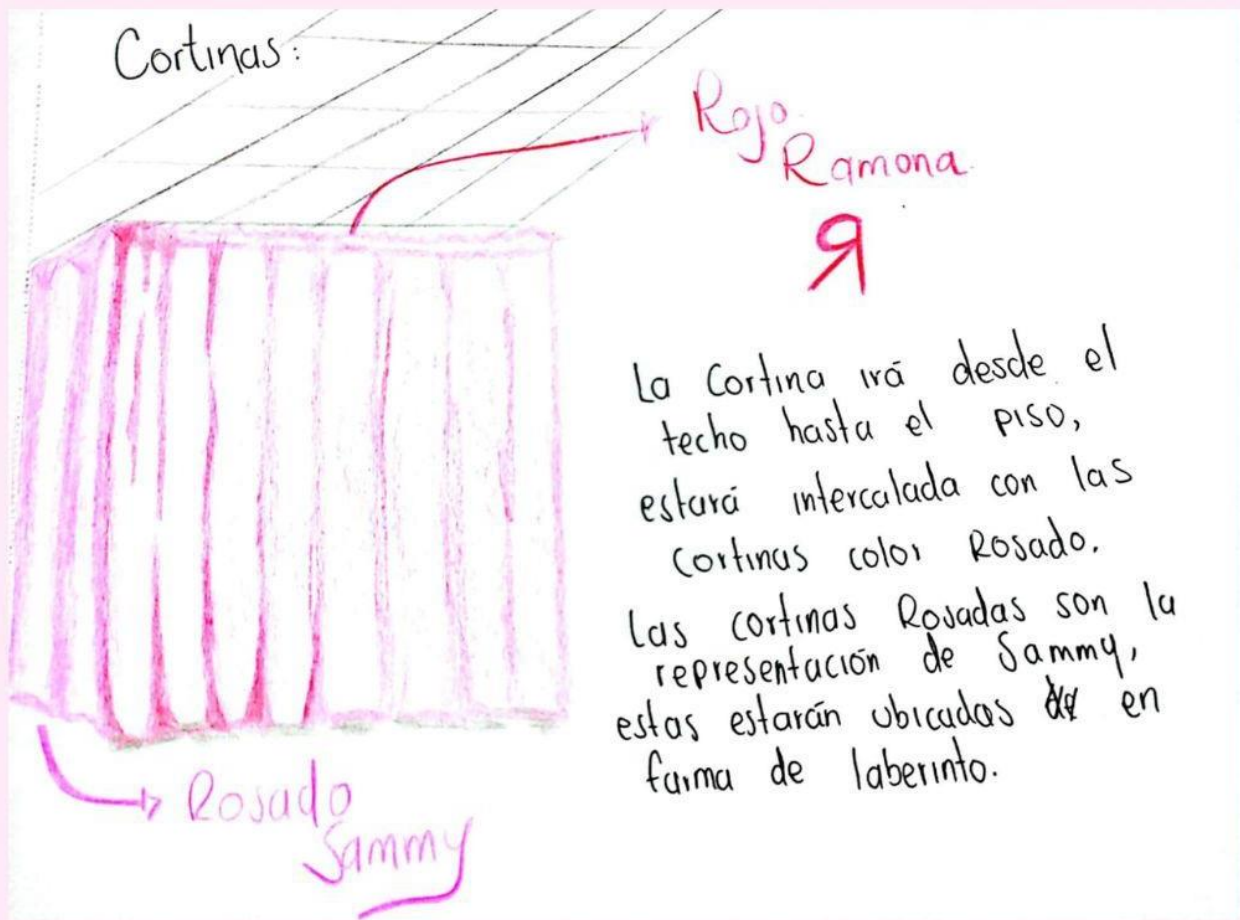 Cortinas:
Rojo
Ramona
Я
La Cortina irá desde el
techo hasta el piso,
estará intercalada con las
cortinas color Rosado.
Las cortinas Rosadas son la
representación de Sammy,
estas estarán ubicadas en
forma de laberinto.
Rosado
Sammy